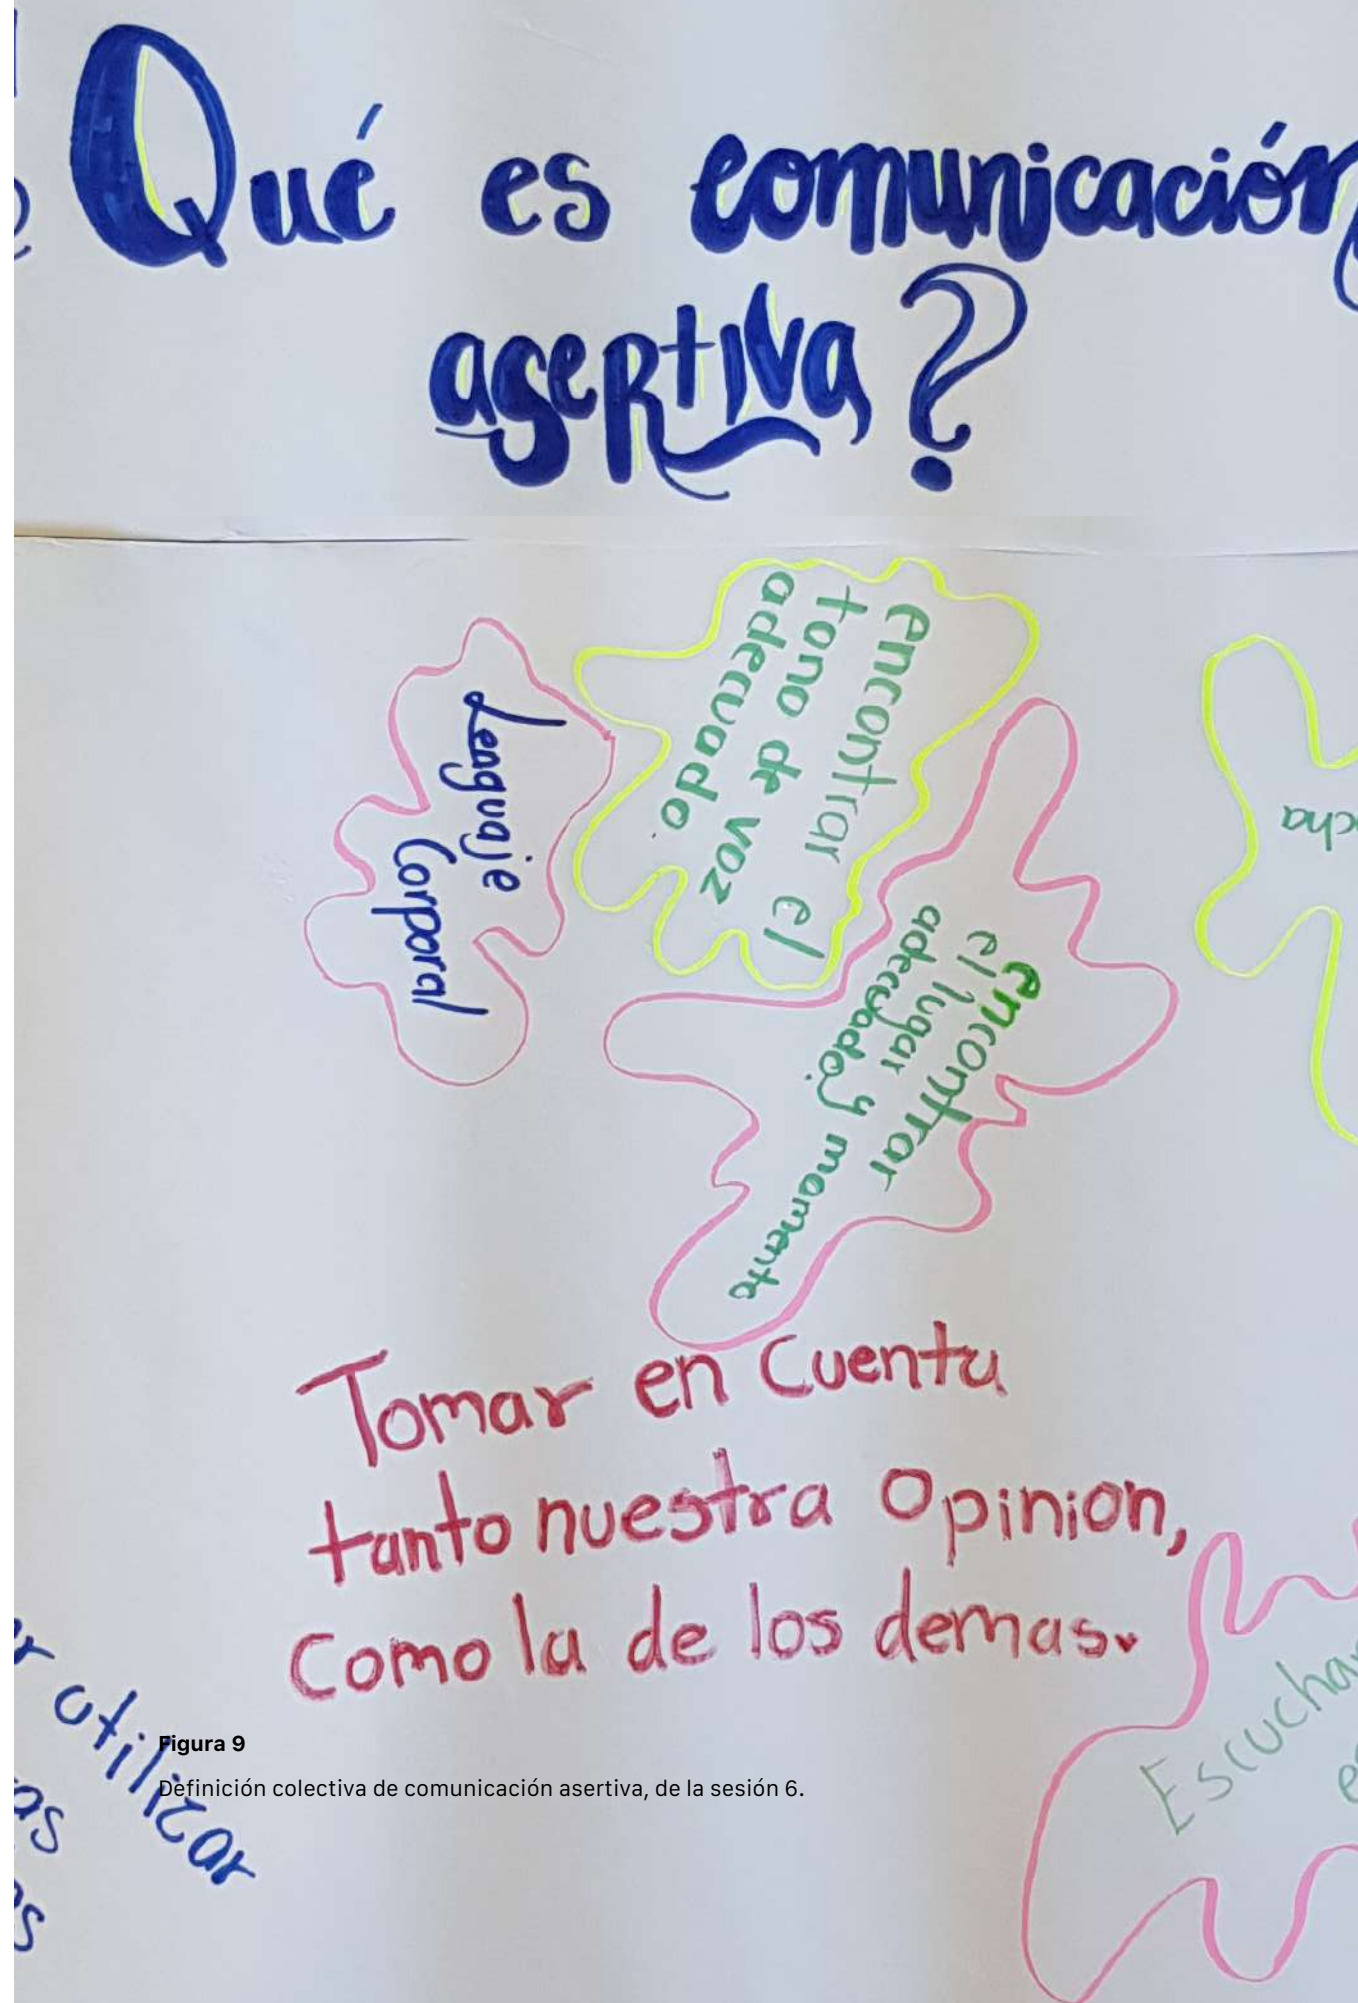 Qué es comunicación
asertiva?
encontrar el
tono de voz
adecuado.
Lenguaje
Corporal
cha
encontrar
el lugar y
adecuado. y momento
Tomar en Cuenta
tanto nuestra Opinion,
Como la de los demas.
utilizar
as
Escucha
Figura 9
Definición colectiva de comunicación asertiva, de la sesión 6.